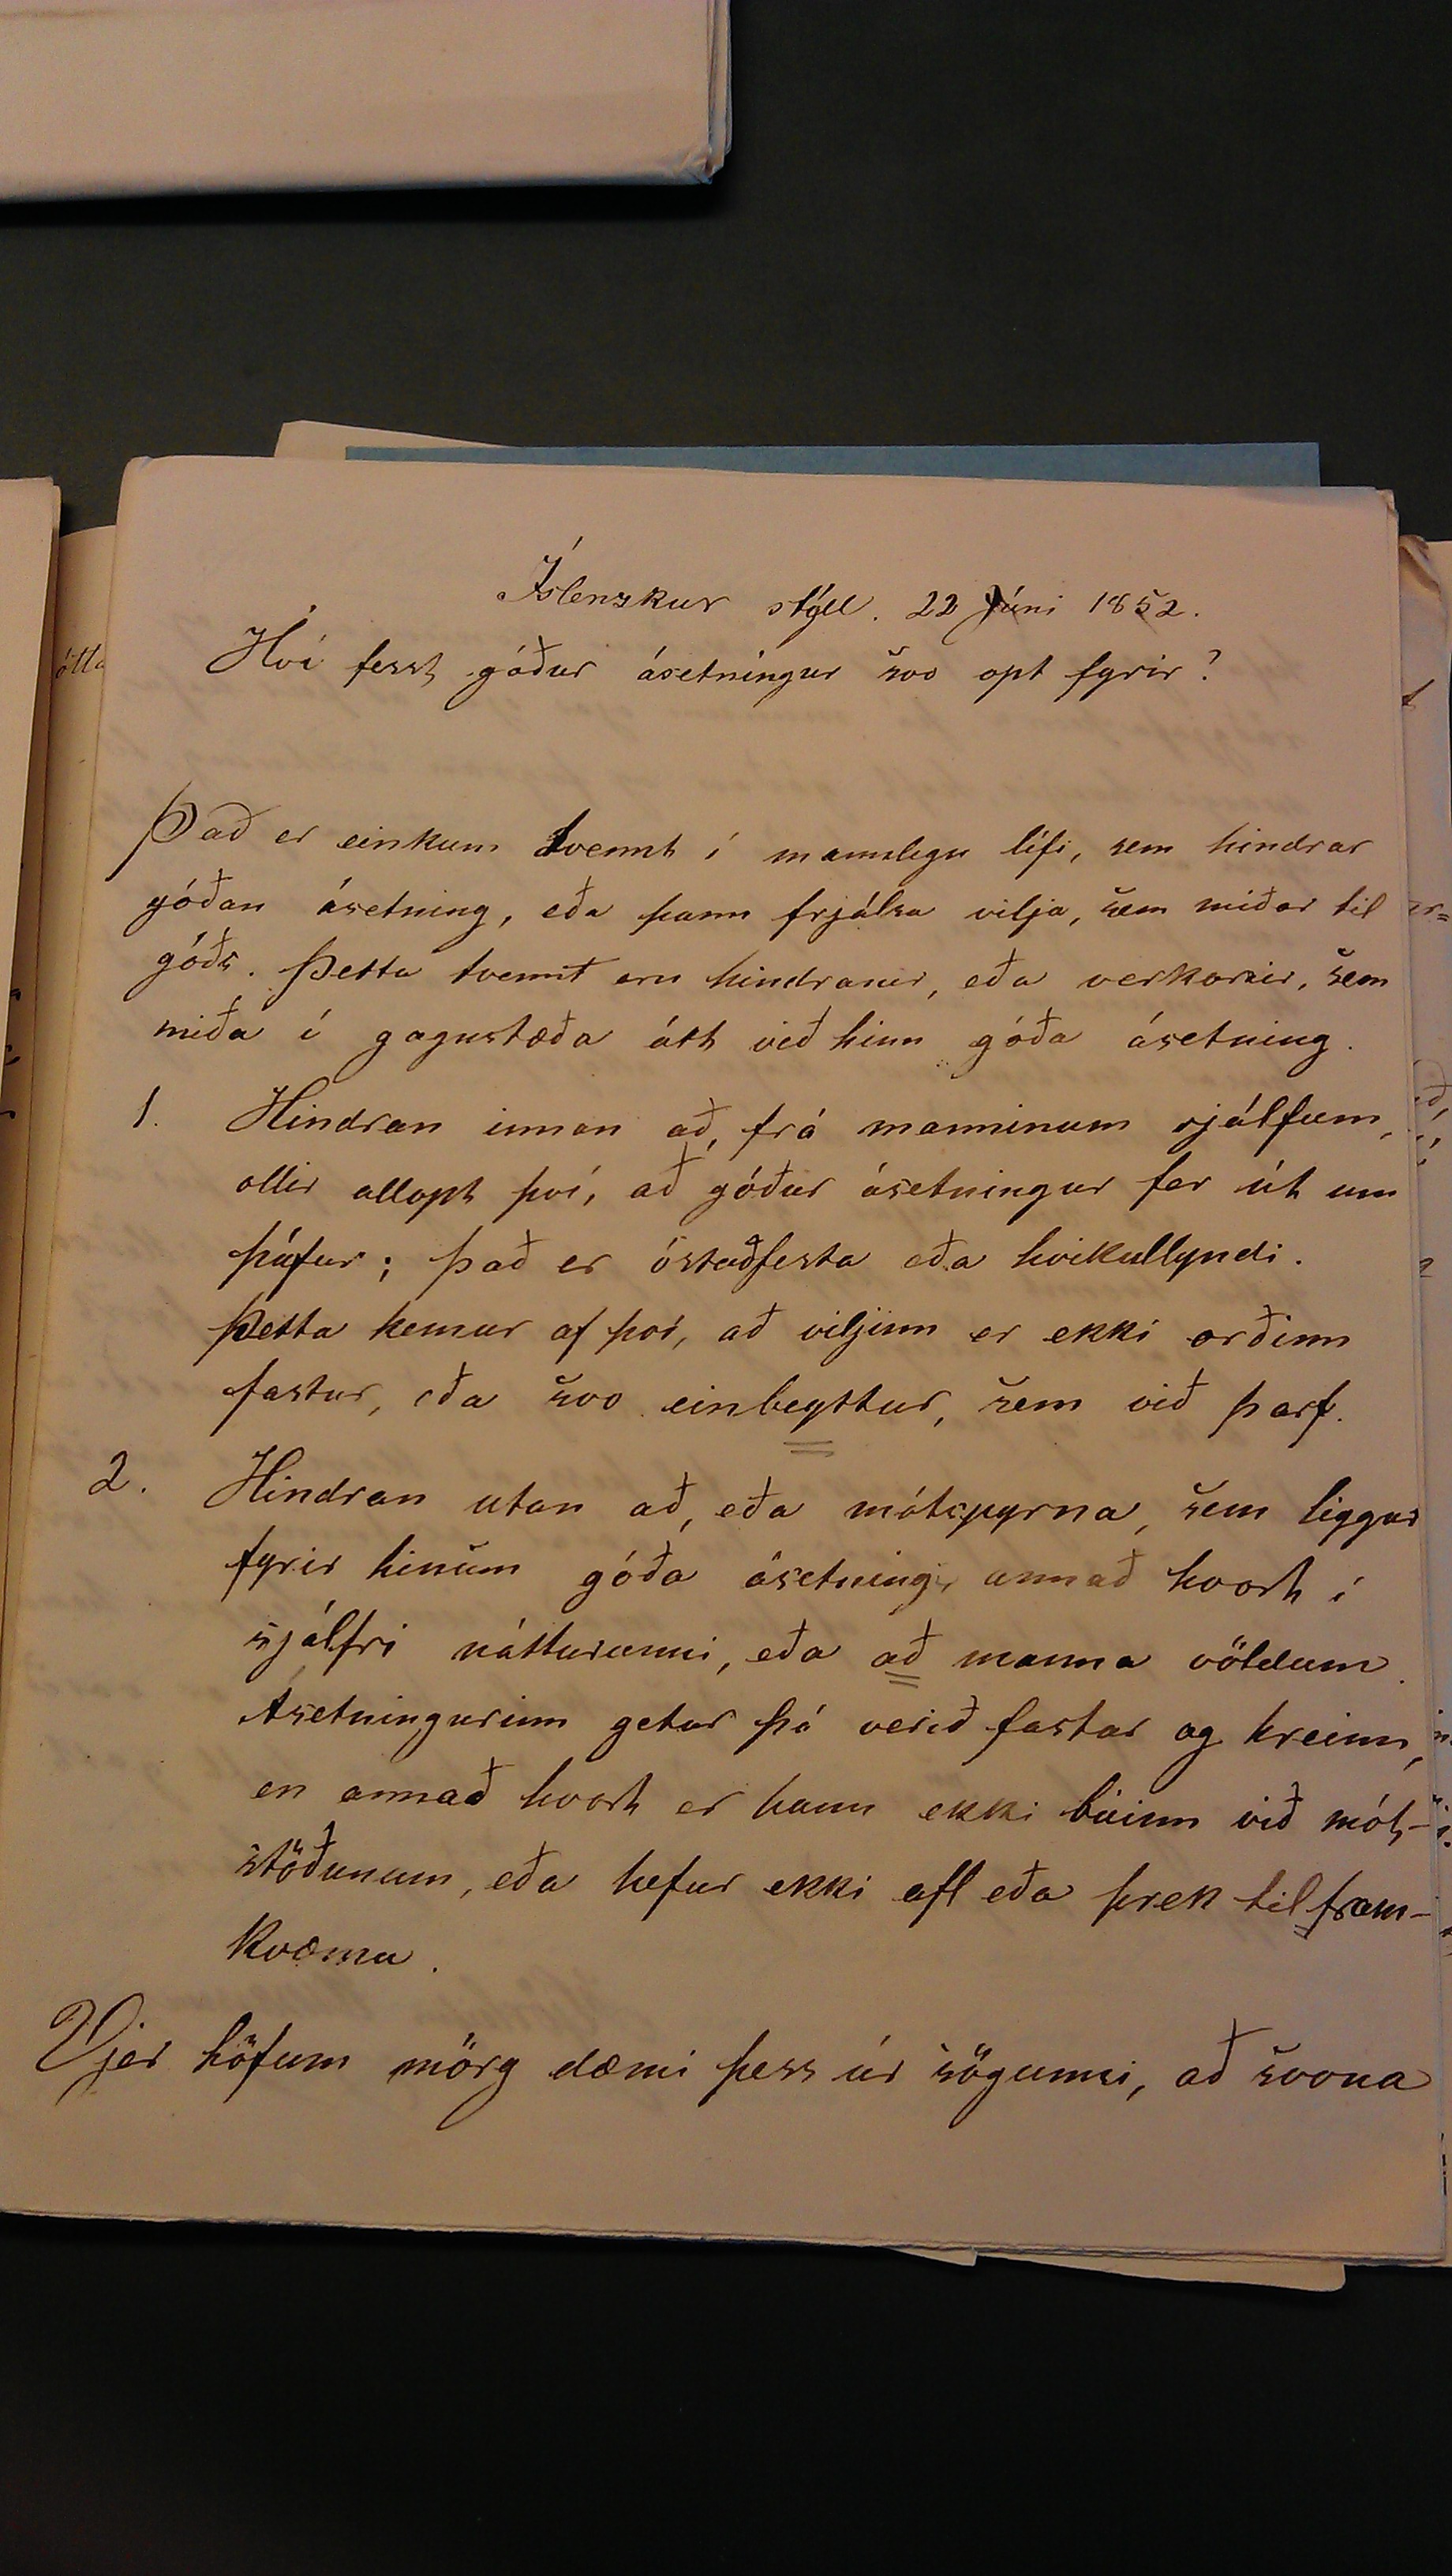 Íslenzkur stýll. 22 Júni 1852.
Hví ferst góður ásetníngur svo opt fyrir?
Það er einkum tvennt í mannlegu lífi, sem hindrar
góðan ásetning, eða þann frjálsa vilja, sem miðar til
góðs. Þetta tvennt eru hindranir, eða verkanir, sem
miða í gagnstæða átt við hinn góða ásetning.
1. Hindran innan að, frá manninum sjálfum,
ollir allopt því, að góður ásetningur fer út um
þúfur; það er óstaðfesta eða hvikullyndi.
Þetta kemur af því, að viljinn er ekki orðinn
fastur, eða svo einbeyttur, sem við þarf.
2. Hindran utan að, eða mótspyrna, sem liggur
fyrir hinum góða ásetningi, annað hvort í
sjálfri náttúrunni, eða að manna völdum.
Ásetningurinn getur þá verið fastur og hreinn,
en annað hvort er hann ekki búinn við mót-
stöðunum, eða hefur ekki afl eða þrek til fram-
kvæma.
Vjer höfum mörg dæmi þess úr sögunni, að svona